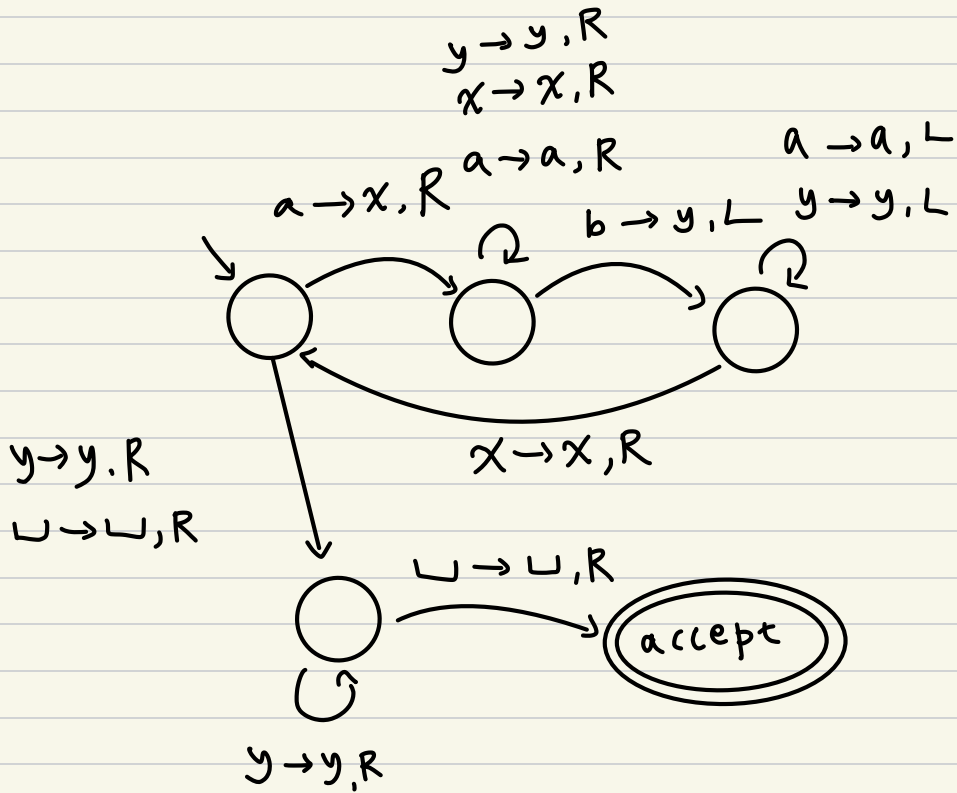 y → y, R
x → x, R
a → a, R
a → x, R
b → y, L
a → a, L
y → y, L
x → x, R
y → y. R
⊔ → ⊔, R
⊔ → ⊔, R
accept
y → y, R